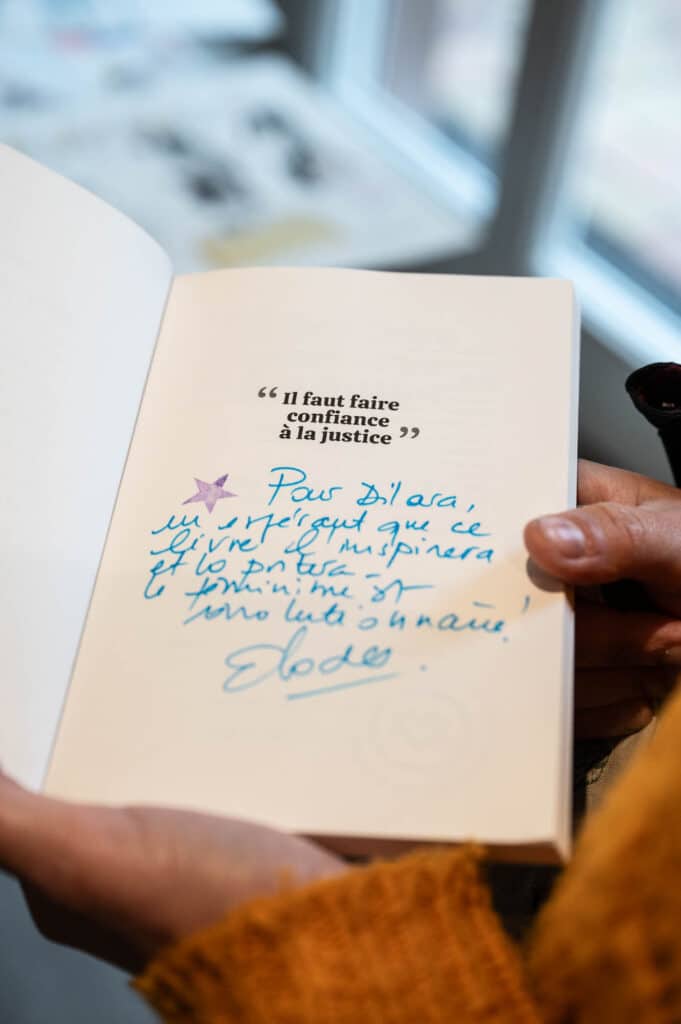 “ Il faut faire
confiance
à la justice ”
Pour Dilara,
en espérant que ce
livre t'inspirera
et te portera -
le féminisme est
révolutionnaire !
Elodie